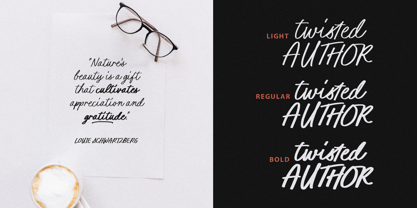 "Nature's
beauty is a gift
that cultivates
appreciation and
gratitude."
LOUIE SCHWARTZBERG
LIGHT twisted
AUTHOR
REGULAR twisted
AUTHOR
BOLD twisted
AUTHOR